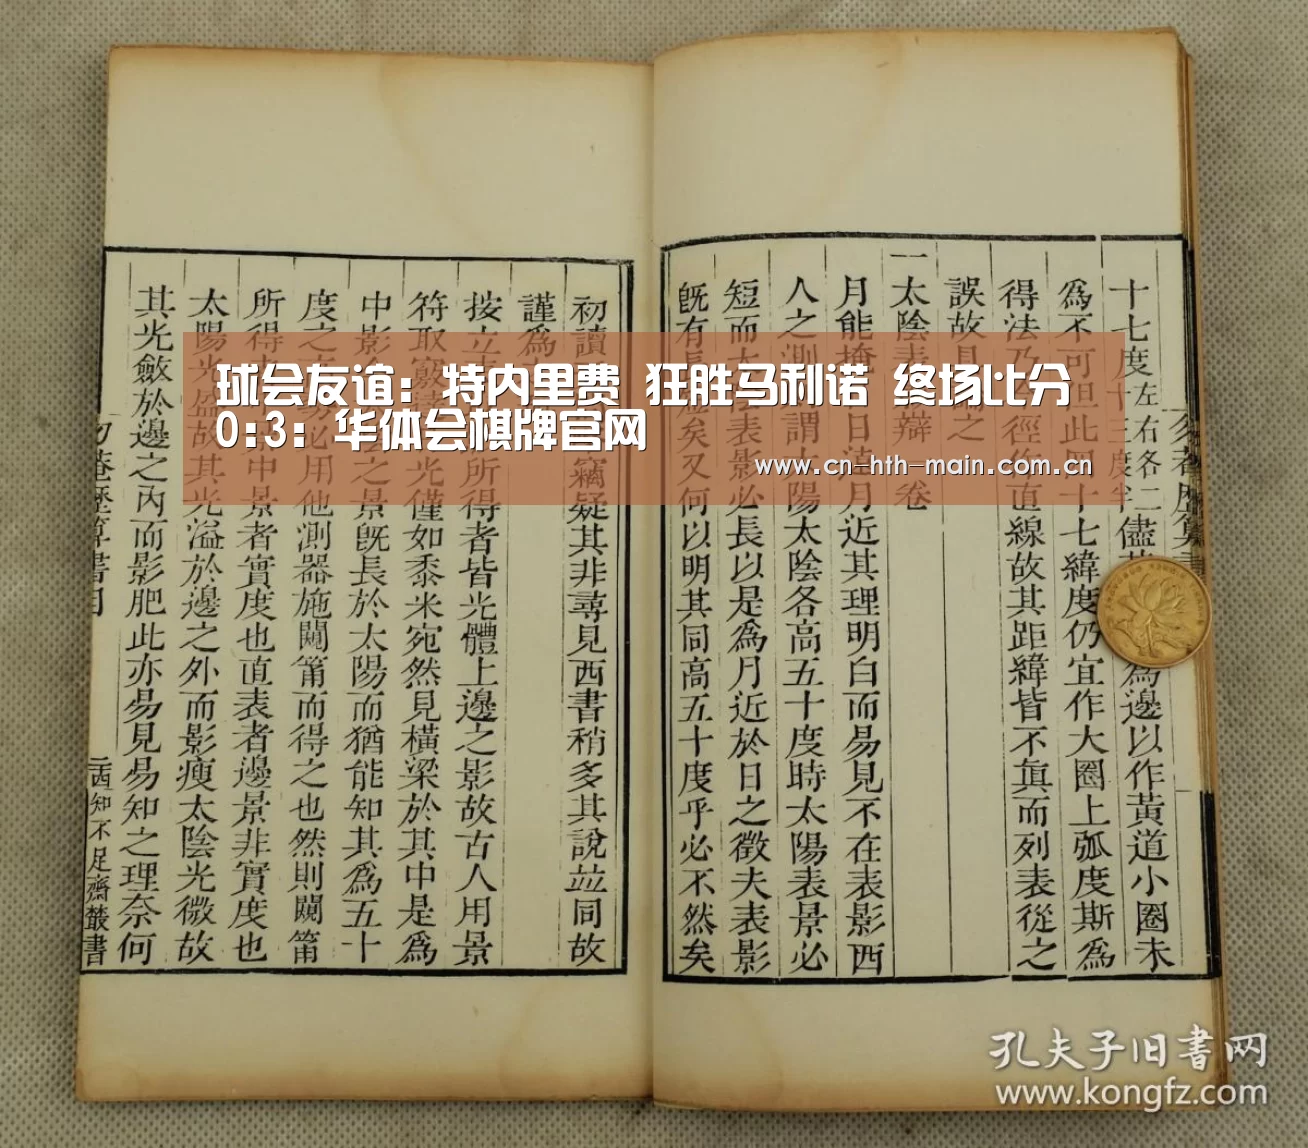 球会友谊：特内里费 狂胜马利诺 终场比分
0:3：华体会棋牌官网
www.cn-hth-main.com.cn
十七度左右各二
儘
為邊以作黃道小圈未
為不可但此圈十七緯度仍宜作大圈上弧度斯為
得法乃
徑作直線故其距緯皆不眞而列表從之
誤故具論之
一太陰表影辯一卷
月能掩日
日遠月近其理明白而易見不在表影西
人之測
謂太陽太陰各高五十度時太陽表景必
短而太陰表影必長以是為月近於日之徵夫表影
旣有長短矣又何以明其同高五十度乎必不然矣
初讀
竊疑其非尋見西書稍多其說並同故
謹為
按立表
所得者皆光體上邊之影故古人用景
符取竅
光僅如黍米宛然見橫梁於其中是為
中影
之景旣長於太陽而猶能知其為五十
度之
必用他測器施闚筩而得之也然則闚筩
所得
中景者實度也直表者邊景非實度也
太陽光盛故其光溢於邊之外而影瘦太陰光微故
其光斂於邊之內而影肥此亦易見易知之理奈何
勿菴歷算書目
知不足齋叢書
孔夫子旧書网
www.kongfz.com